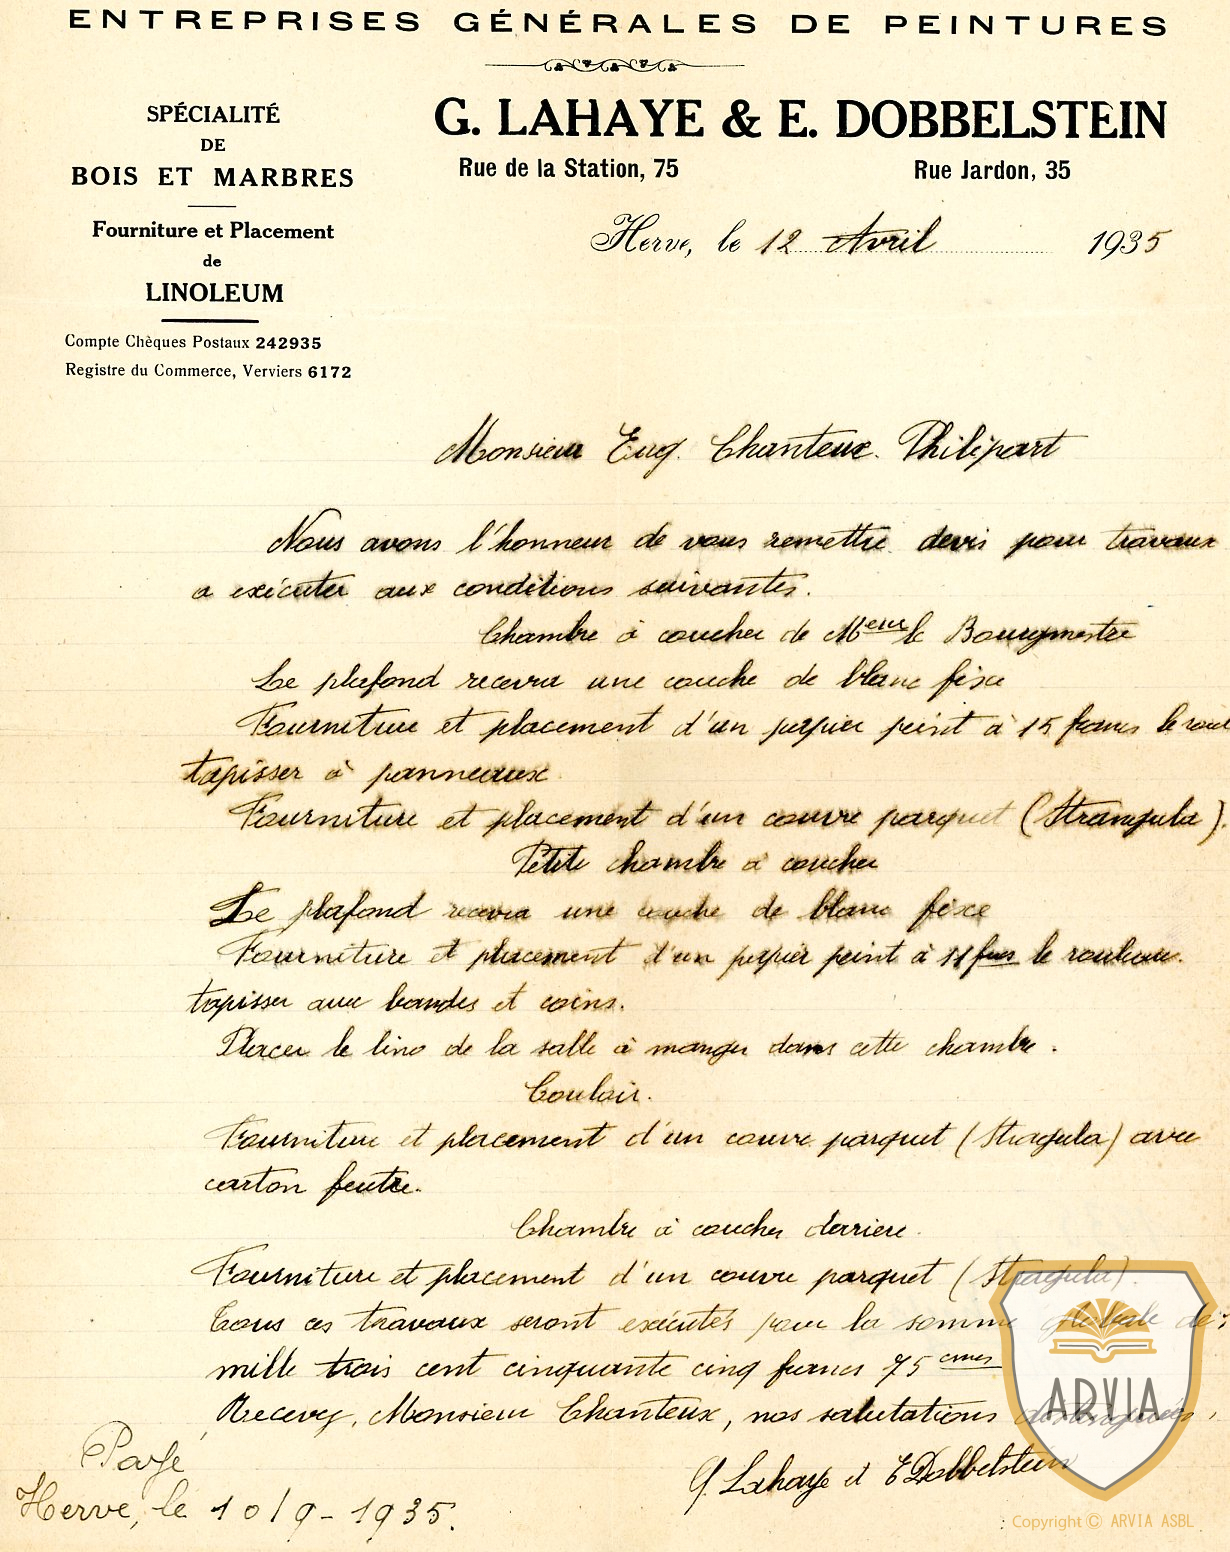 ENTREPRISES GÉNÉRALES DE PEINTURES
SPÉCIALITÉ
DE
BOIS ET MARBRES
Fourniture et Placement
de
LINOLEUM
Compte Chèques Postaux 242935
Registre du Commerce, Verviers 6172
G. LAHAYE & E. DOBBELSTEIN
Rue de la Station, 75 Rue Jardon, 35
Herve, le 12 Avril 1935
Monsieur Eug. Chanteux. Philipart
Nous avons l'honneur de vous remettre devis pour travaux
a exécuter aux conditions suivantes.
Chambre à coucher de Meur le Bourgmestre
Le plafond recevra une couche de blanc fixe
Fourniture et placement d'un papier peint à 15 francs le roul
tapisser à panneaux
Fourniture et placement d'un couvre parquet (Strangula).
Petite chambre à coucher
Le plafond recevra une couche de blanc fixe
Fourniture et placement d'un papier peint à 11 frs le rouleau.
tapisser avec bandes et coins.
Placer le lino de la salle à manger dans cette chambre.
Couloir.
Fourniture et placement d'un couvre parquet (Stragula) avec
carton feutre.
Chambre à coucher derriere.
Fourniture et placement d'un couvre parquet (Stragula).
Tous ces travaux seront exécutés pour la somme globale de:
mille trois cent cinquante cinq francs 75 cmes
Recevez, Monsieur Chanteux, nos salutations distinguées,
G. Lahaye et E Dobbelstein
Payé
Herve, le 10/9-1935.
ARVIA
Copyright © ARVIA ASBL